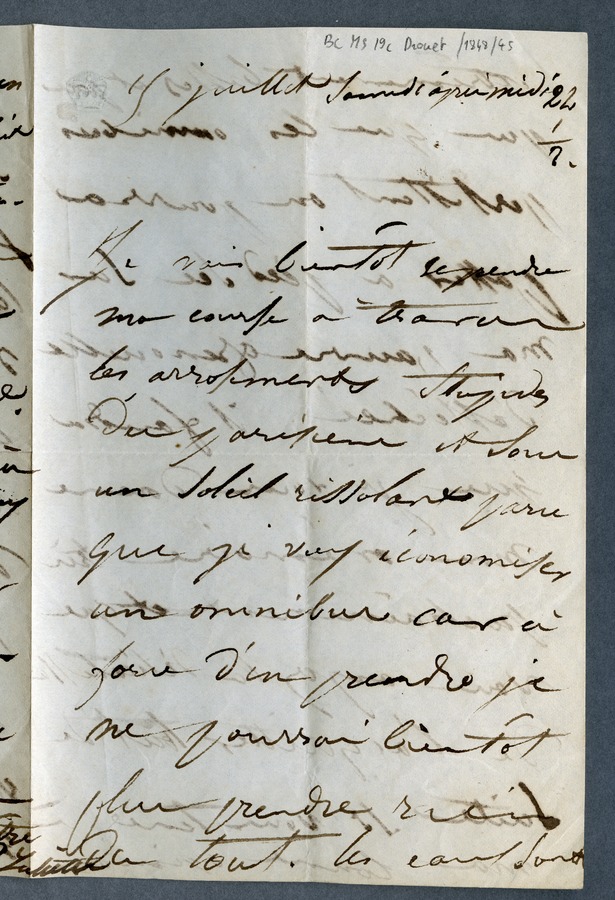 BC MS 19c Drouet /1848/45
15 juillet Samedi après midi 2h
1/2.
Je vais bientôt reprendre
ma course à travers
les arrosements stupides
du parisien et sous
un soleil rissolant parce
que je veux économiser
un omnibus car à
force d'en prendre je
ne pourrai bientôt
plus prendre rien
du tout. les eaux sont